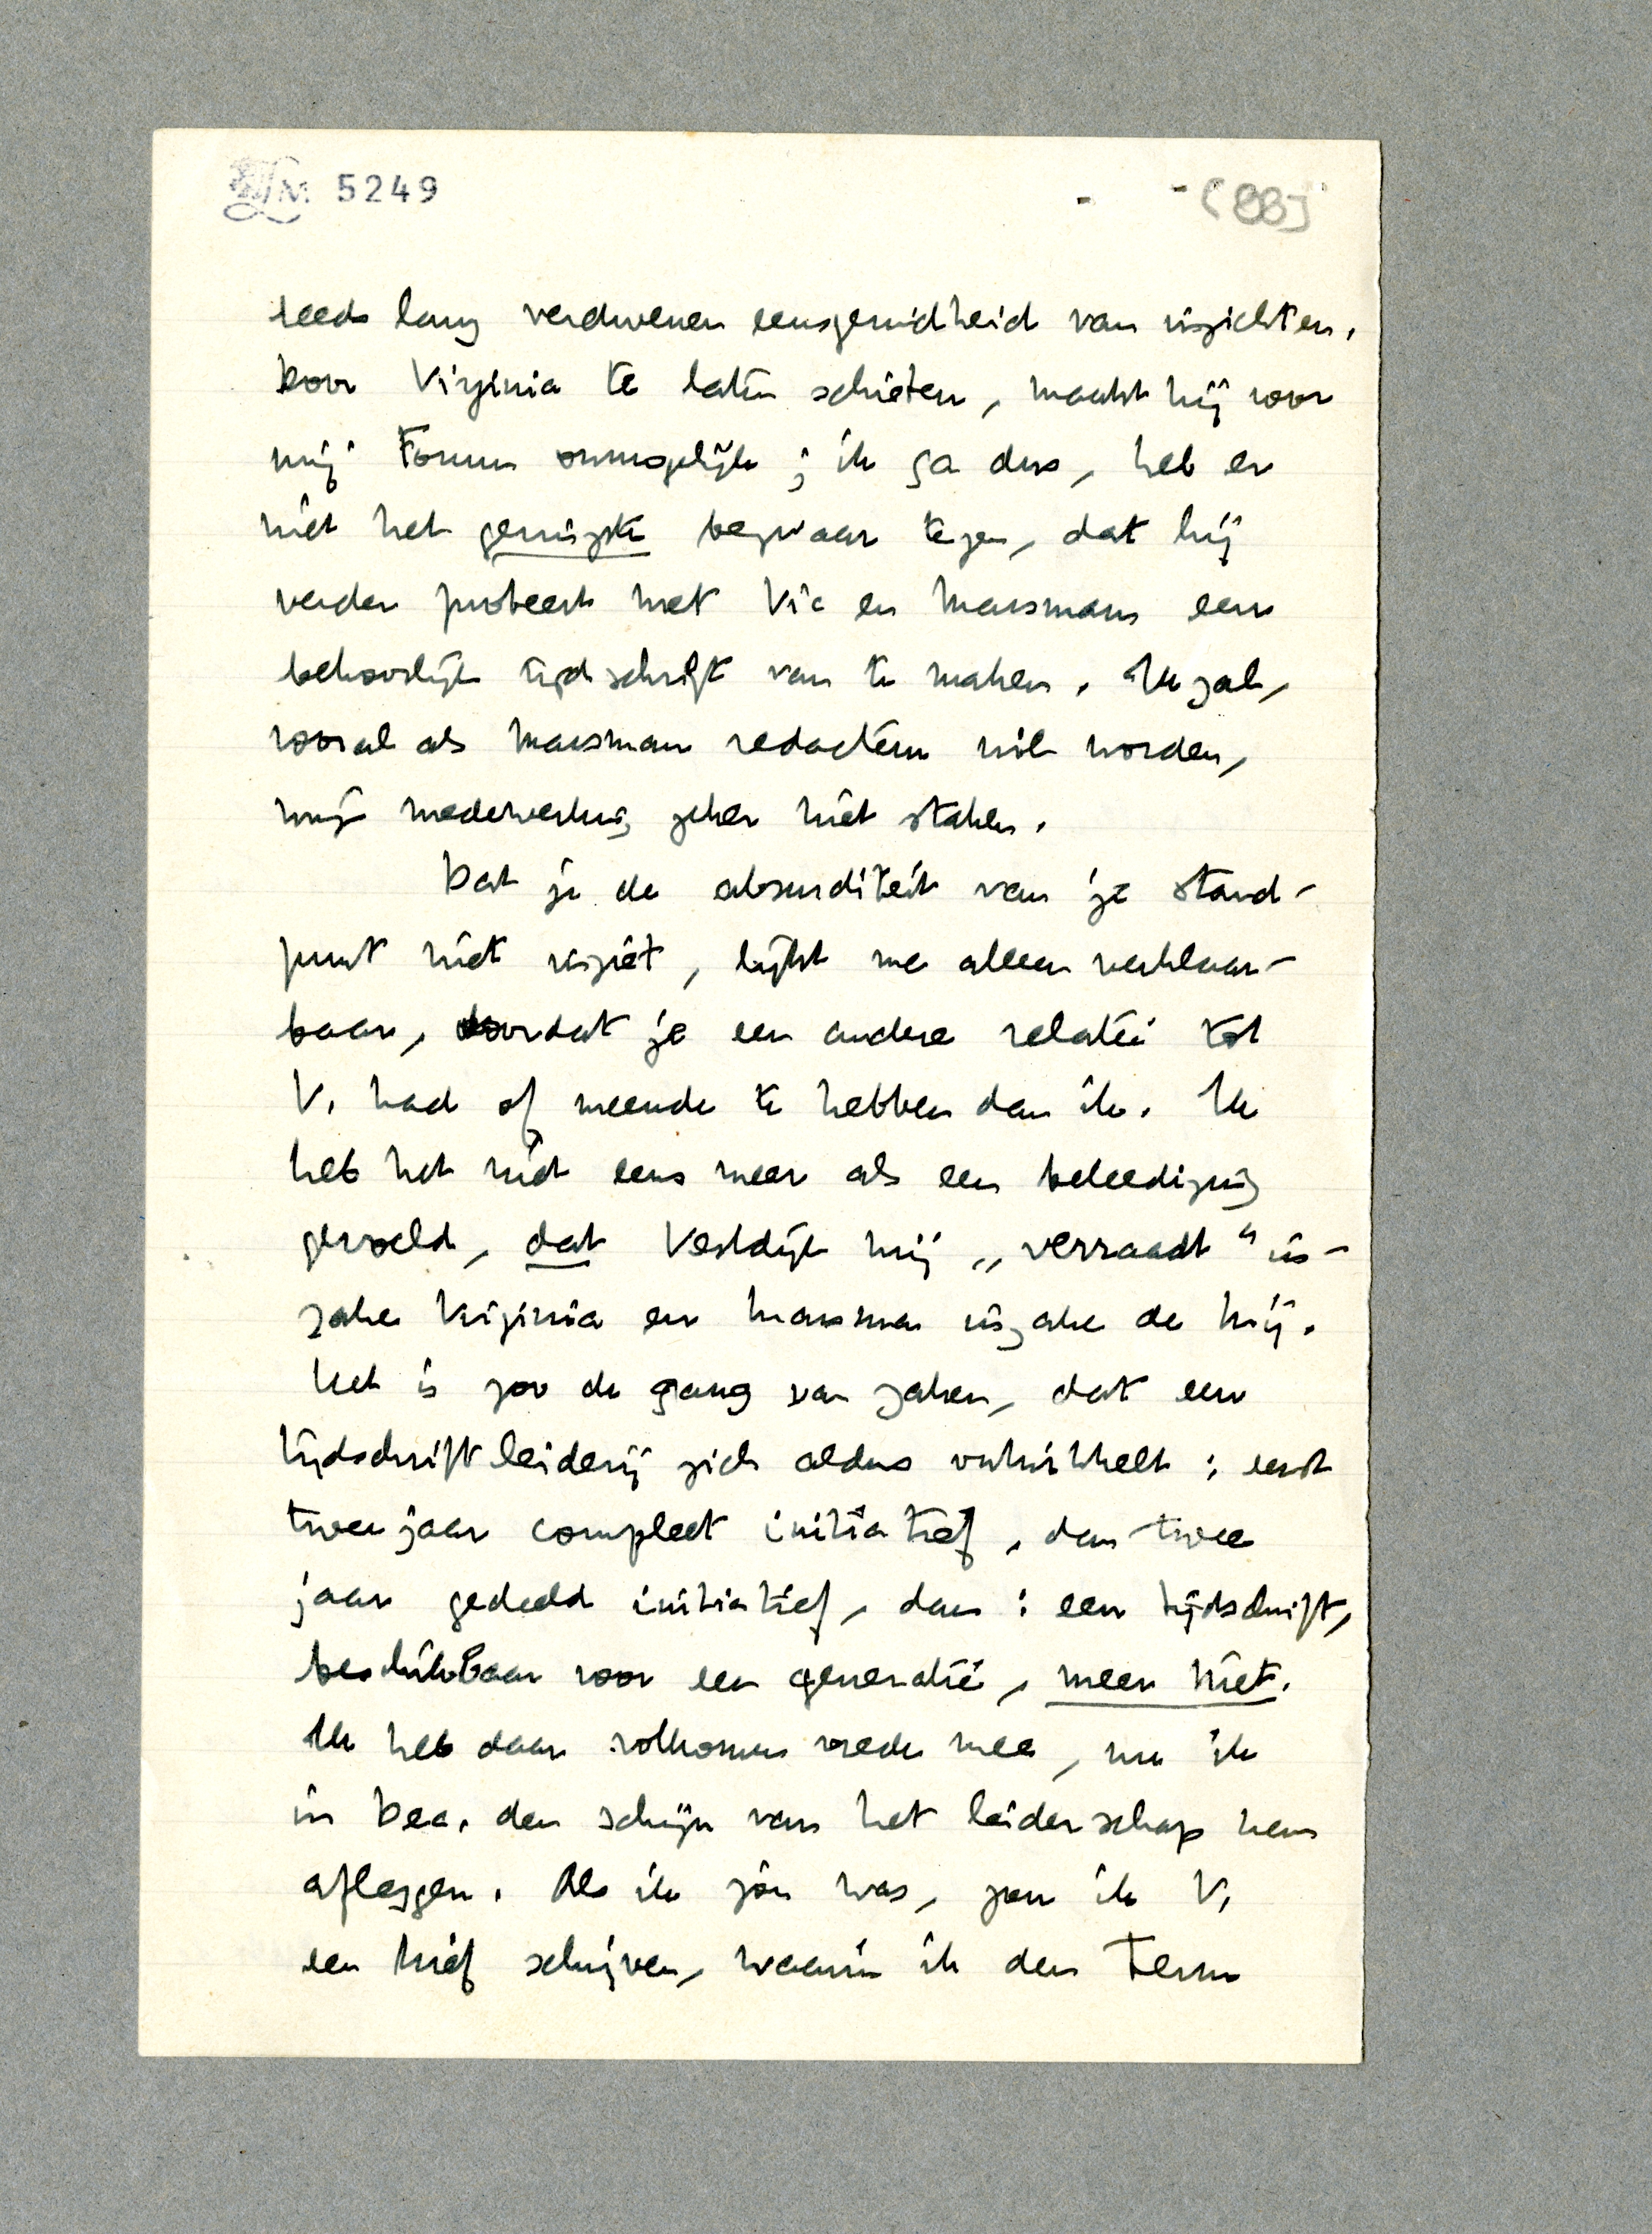 LM 5249
(88)
reeds lang verdwenen eensgezindheid van inzichten.
Door Virginia te laten schieten, maakt hij voor
mij Forum onmogelijk; ik ga dus, heb er
niet het geringste bezwaar tegen, dat hij
verder probeert met Vic en Marsman een
behoorlijk tijdschrift van te maken. Ik zal,
vooral als Marsman redacteur wil worden,
mijn medewerking zeker niet staken.
Dat je de absurditeit van je stand-
punt niet inziet, lijkt me alleen verklaar-
baar, doordat je een andere relatie tot
V. had of meende te hebben dan ik. Ik
heb het niet eens meer als een beleediging
gevoeld, dat Vestdijk mij „verraadt" in-
zake Virginia en Marsman inzake de Mij.
Het is zoo de gang van zaken, dat een
tijdschriftleiderij zich aldus ontwikkelt: eerst
twee jaar compleet initiatief, dan twee
jaar gedeeld initiatief, dan: een tijdschrift,
beschikbaar voor een generatie, meer niet.
Ik heb daar volkomen vrede mee, nu ik
in Dec. den schijn van het leiderschap kan
afleggen. Als ik jou was, zou ik V.
een brief schrijven, waarin ik den term